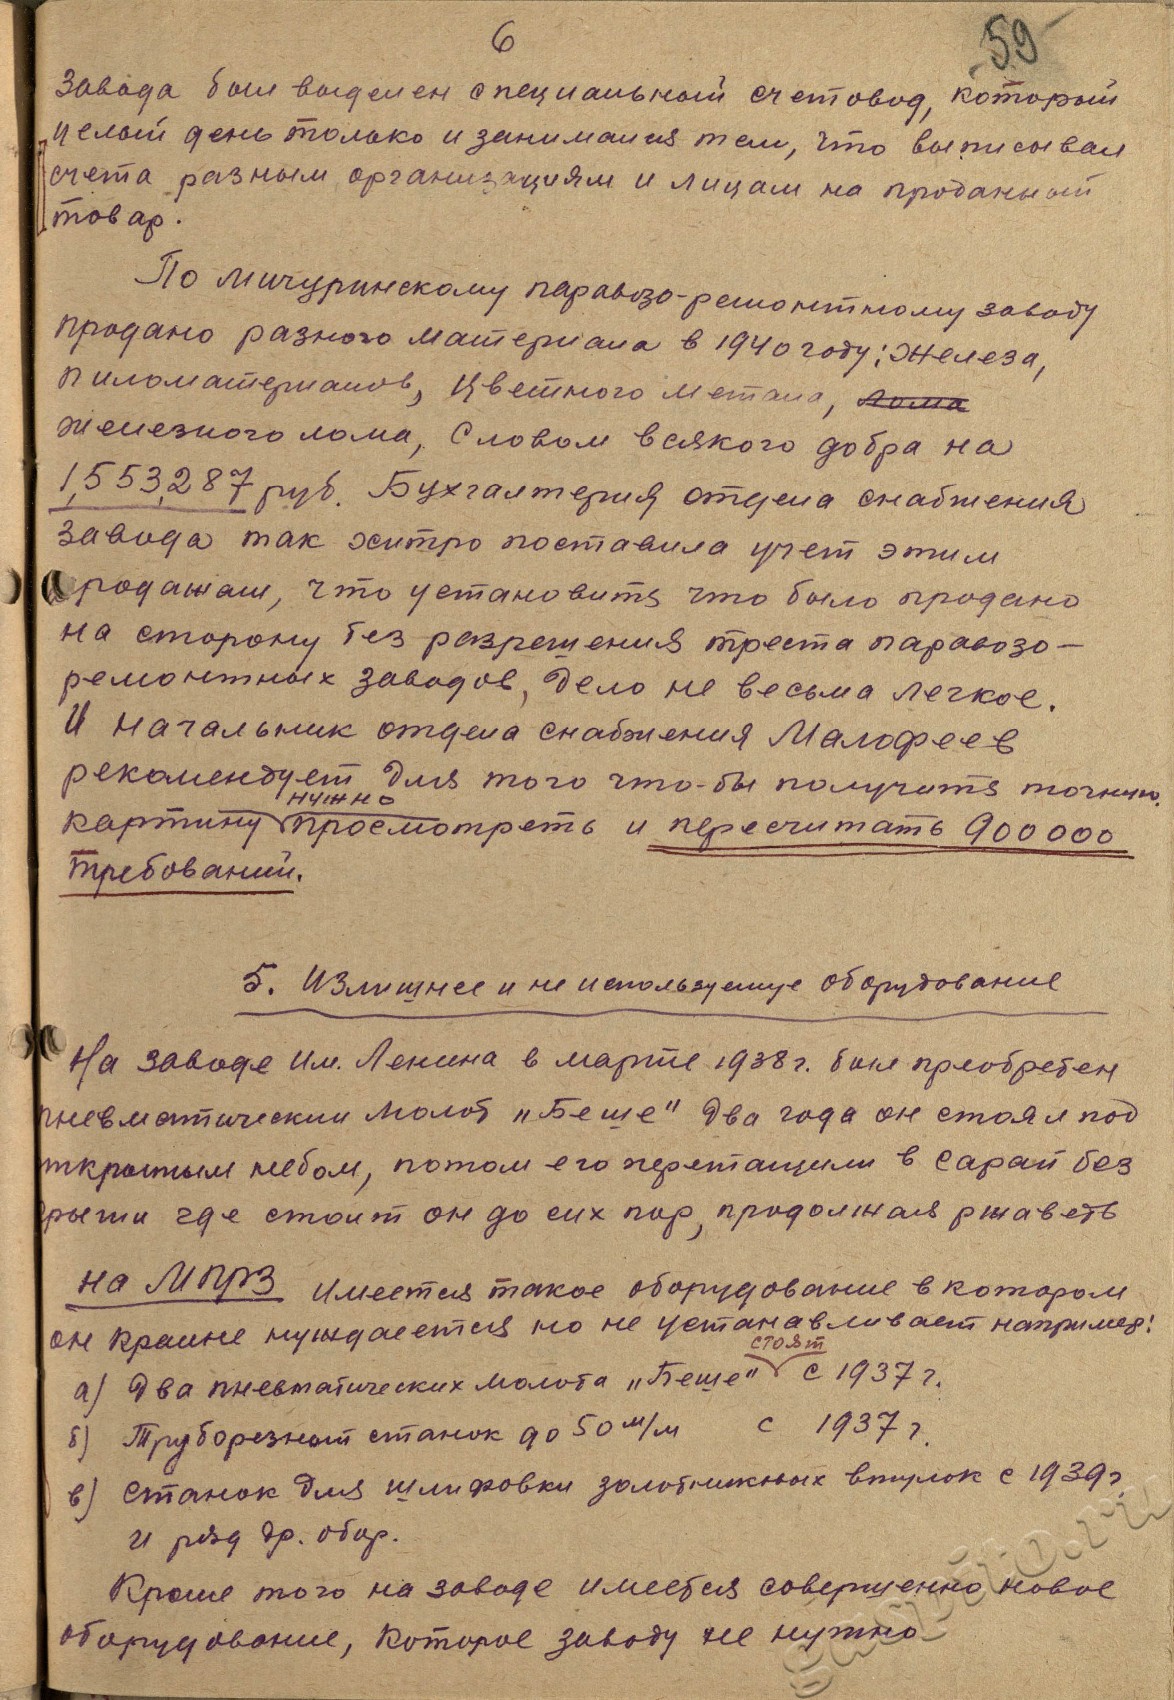 6
59
завода был выделен специальный счетовод, который
целый день только и занимался тем, что выписывал
счета разным организациям и лицам на проданный
товар.
По Мичуринскому паравозо-ремонтному заводу
продано разного материала в 1940 году: железа,
пиломатериалов, цветного метала, лома
железного лома, словом всякого добра на
1,553,287 руб. Бухгалтерия отдела снабжения
завода так хитро поставила учет этим
продажам, что установить что было продано
на сторону без разрешения треста паравозо-
ремонтных заводов, дело не весьма легкое.
И начальник отдела снабжения Малофеев
рекомендует для того что-бы получить точную
нужно
картину просмотреть и пересчитать 900000
требований.
5. Излишнее и не используемие оборудование
На заводе им. Ленина в марте 1938 г. был преобретен
пневматический молот „Беше" два года он стоял под
открытым небом, потом его перетащили в сарай без
крыши где стоит он до сих пор, продолжая ржаветь
на МПРЗ имеется такое оборудование в котором
он крайне нуждается но не устанавливает например:
стоят
а) Два пневматических молота „Беше" с 1937 г.
б) Труборезный станок до 50 м/м с 1937 г.
в) станок для шлифовки золотниковых втулок с 1939 г.
и ряд др. обор.
Кроме того на заводе имеется совершенно новое
оборудование, которое заводу не нужно
sanyato.ru